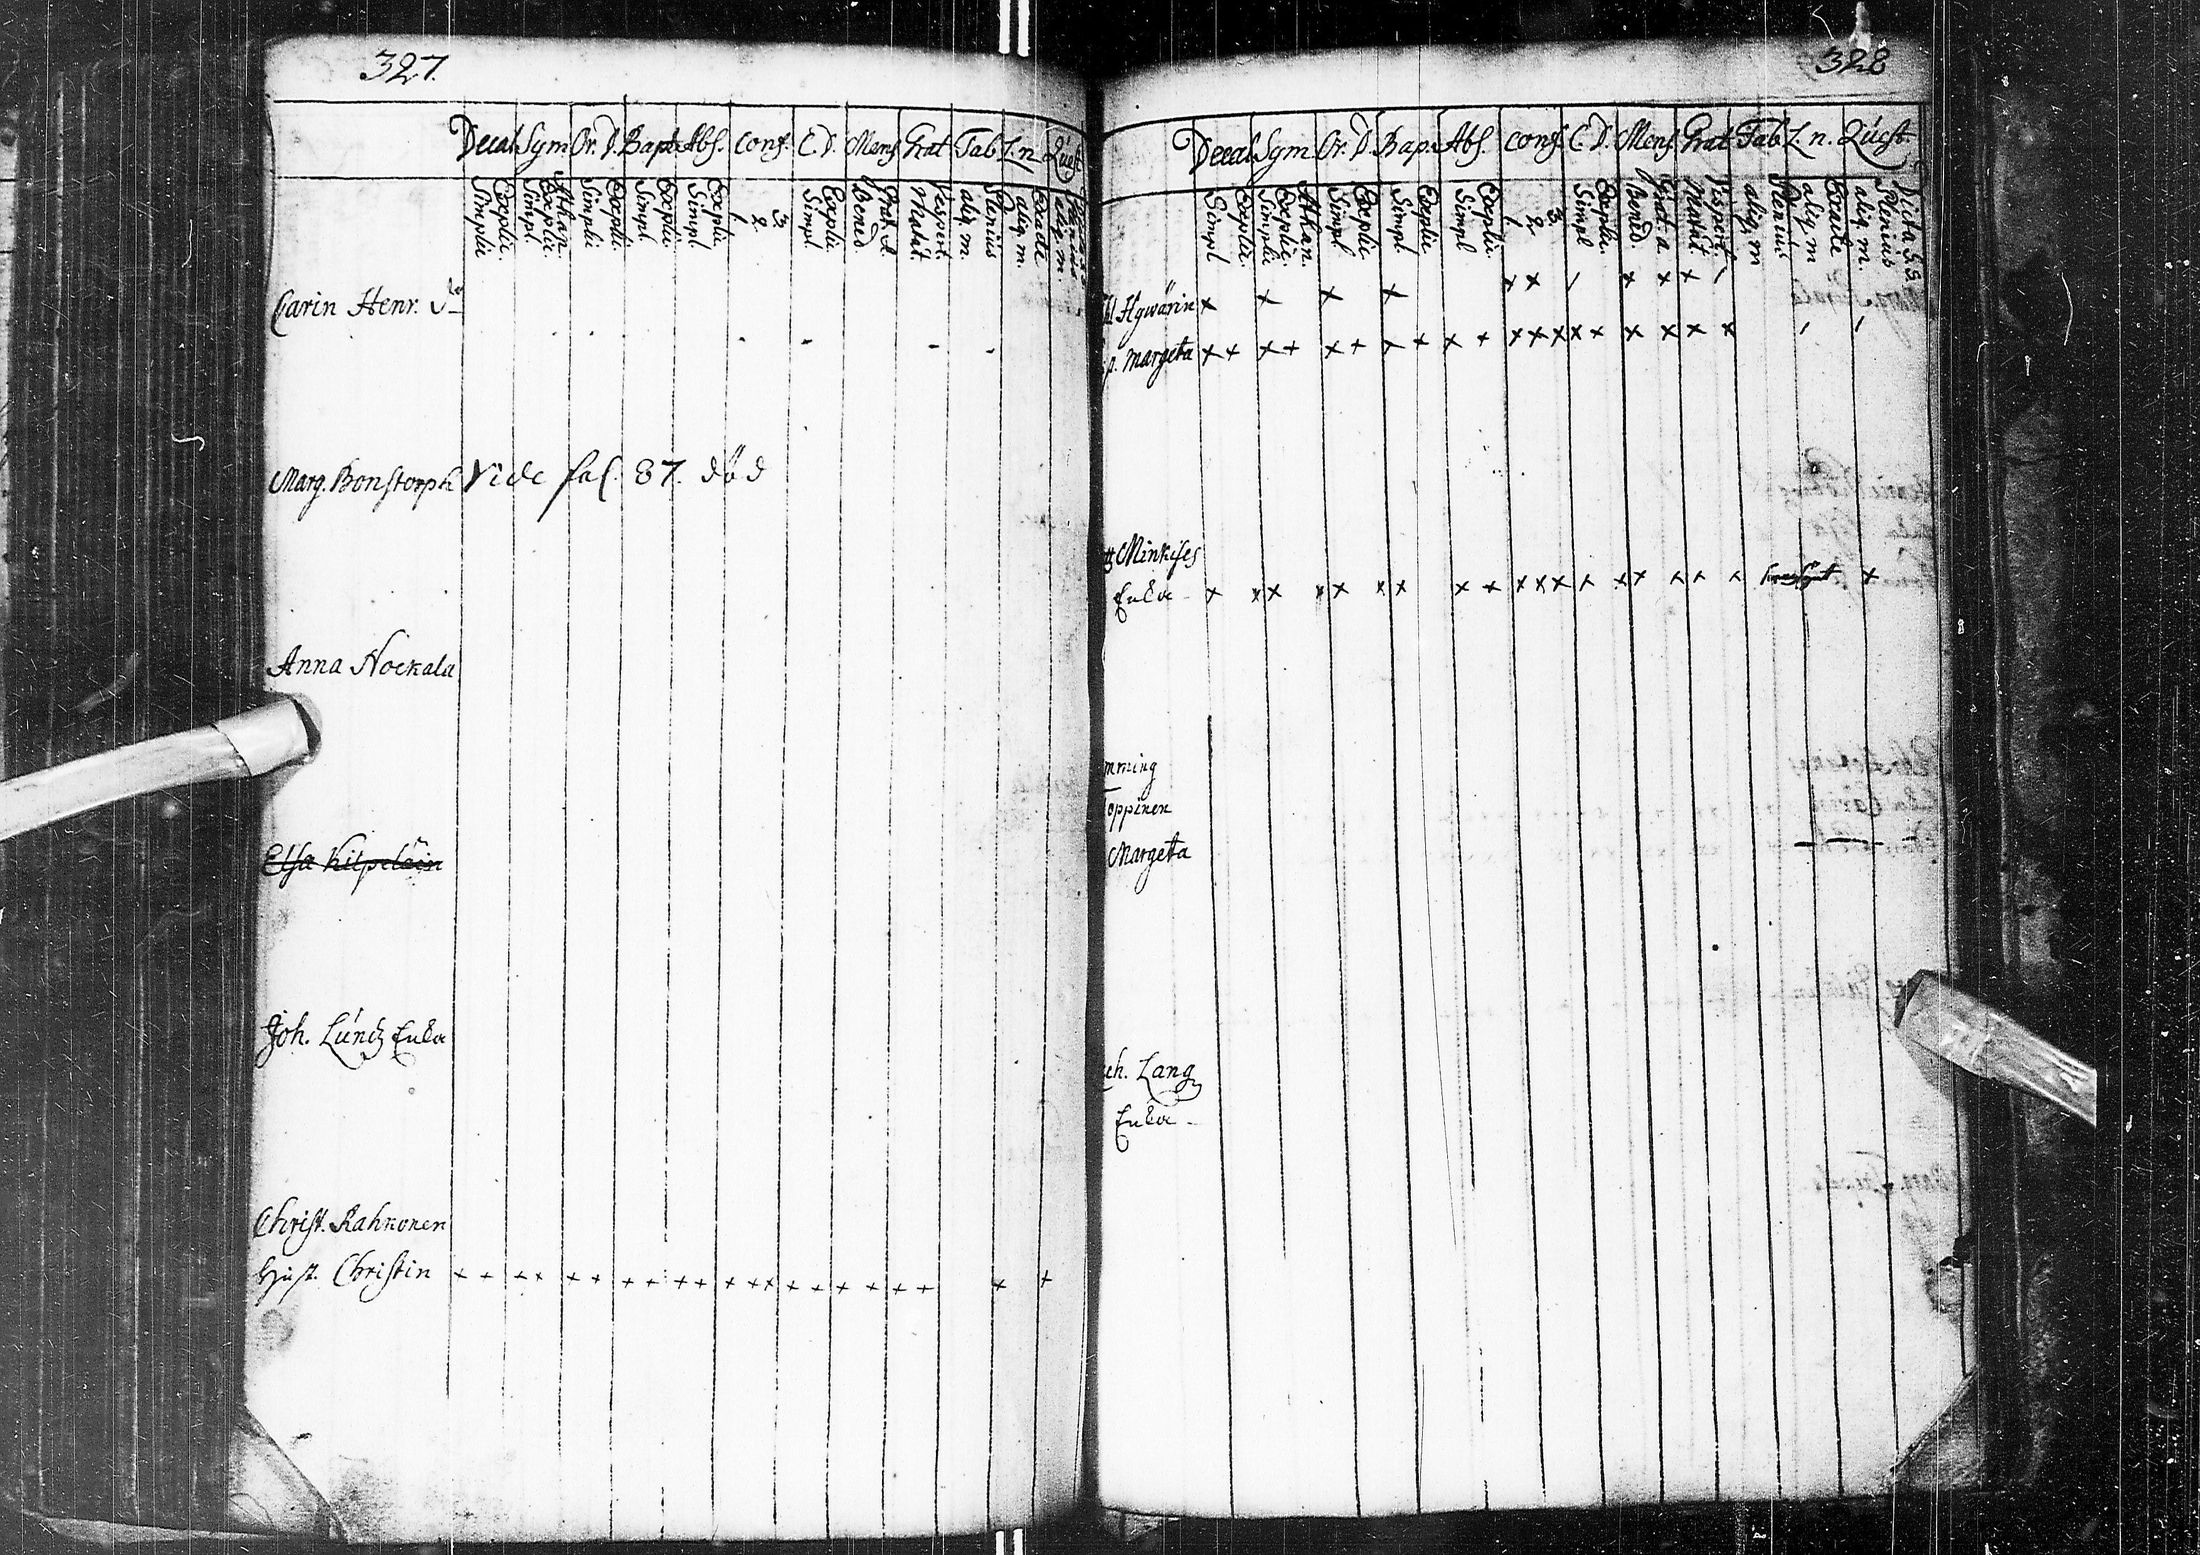 327.
Decal. Sym Or. D. Bapt. Abs. Conf. C. D. Mens Grat Tab L. n Quæst
Simplic Explic. Simpl. Explic. Athan. Simplic Explic. Simpl. Explic. Simpl Explic 1 2 3 Simpl. Explic. Bened. Grat. a. Matut. Vespert. aliq. m. Plenius aliq. m. Exacte aliq. m. Plenius
Carin Henr. dr
Marg. Bonstorph Vide fal. 87. död
Anna Nockala
Elsa Kilpeläin
Joh. Lúndz Enka
Christ. Rahkonen
Hust. Christin x x x x x x x x x x x x x x x x x x x x x
328
Decal. Sym. Or. D. Bap. Abs. Conf. C. D. Mens. Grat Tab. L. n. Quæst.
Simpl Explic. Simplic Explic. Athan. Simpl Explic Simpl. Explic. Simpl Explic. 1 2 3 Simpl Explic. Bened. Grat. a Matut. Vespert. aliq. m Plenius aliq. m Exacte aliq. m. Plenius Dicta SS
Hywärin x x x x x x x x x
Margeta x x x x x x x x x x x x x x x x x x x
Minkises
Enka x x x x x x x x x x x x x x x x x x x
mming
Toppinen
Margeta
ch. Lang
Enka